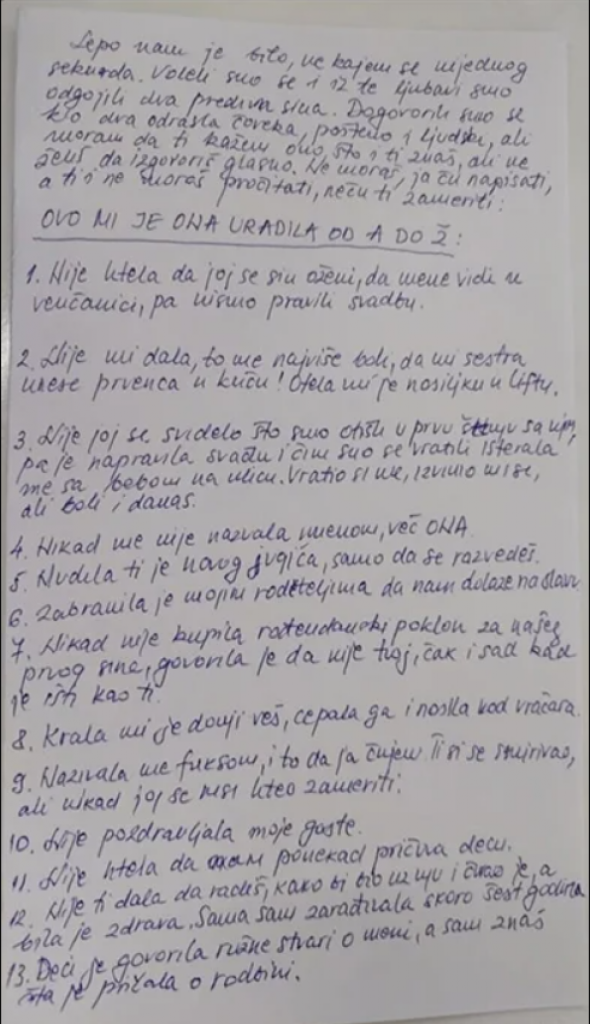 Lepo nam je bilo, ne kajem se nijednog
sekunda. Voleli smo se i iz te ljubavi smo
odgojili dva predivna sina. Dogovorili smo se
k'o dva odrasla čoveka, pošteno i ljudski, ali
moram da ti kažem ono, što i ti znaš, ali ne
želiš da izgovoriš glasno. Ne moraš, ja ću napisati,
a ti i ne moraš pročitati, neću ti zameriti:
OVO MI JE ONA URADILA OD A DO Ž:
1. Nije htela da joj se sin oženi, da mene vidi u
venčanici, pa nismo pravili svadbu.
2. Nije mi dala, to me najviše boli, da mi sestra
unese prvenca u kuću! Otela mi je nosiljku u liftu.
3. Nije joj se svidelo što smo otišli u prvu šetnju sa njim,
pa je napravila svađu i čim smo se vratili isterala
me sa bebom na ulicu. Vratio si me, izvinio mi se,
ali boli i danas.
4. Nikad me nije nazvala imenom, već ONA.
5. Nudila ti je novog jugića, samo da se razvedeš.
6. Zabranila je mojim roditeljima da nam dolaze na slavu
7. Nikad nije kupila rođendanski poklon za našeg
prvog sina, govorila je da nije tvoj, čak i sad kad
je isti kao ti.
8. Krala mi je donji veš, cepala ga i nosila kod vračara.
9. Nazivala me fuksom, i to da ja čujem. Ti si se smirivao,
ali nikad joj se nisi hteo zameriti.
10. Nije pozdravljala moje goste.
11. Nije htela da nam ponekad pričuva decu.
12. Nije ti dala da radiš, kako bi bio uz nju i čuvao je, a
bila je zdrava. Sama sam zarađivala skoro šest godina
13. Deci je govorila ružne stvari o meni, a sam znaš
šta je pričala o rodbini.